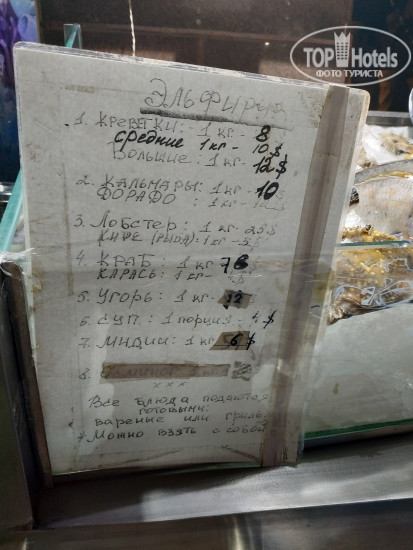 TOP Hotels
ФОТО ТУРИСТА
ЭЛЬФИРУЗ
1. КРЕВЕТКИ: 1 кг - 8
СРЕДНИЕ 1 кг - 10 $
БОЛЬШИЕ: 1 кг - 12 $
2. КАЛЬМАРЫ: 1 кг - 10
ФОРАДО : 1 кг -
3. ЛОБСТЕР: 1 кг - 25 $
(РЫБА): 1 кг - 5 $
4. КРАБ: 1 кг
КАРАСЬ: 1 кг - 5 $
5. УГОРЬ: 1 кг - 12
6. СУП: 1 порция - 4 $
7. МИДИИ: 1 кг 6 $
8.
ххх
Все блюда подаются
готовыми:
вареные или гриль.
* Можно взять с собой